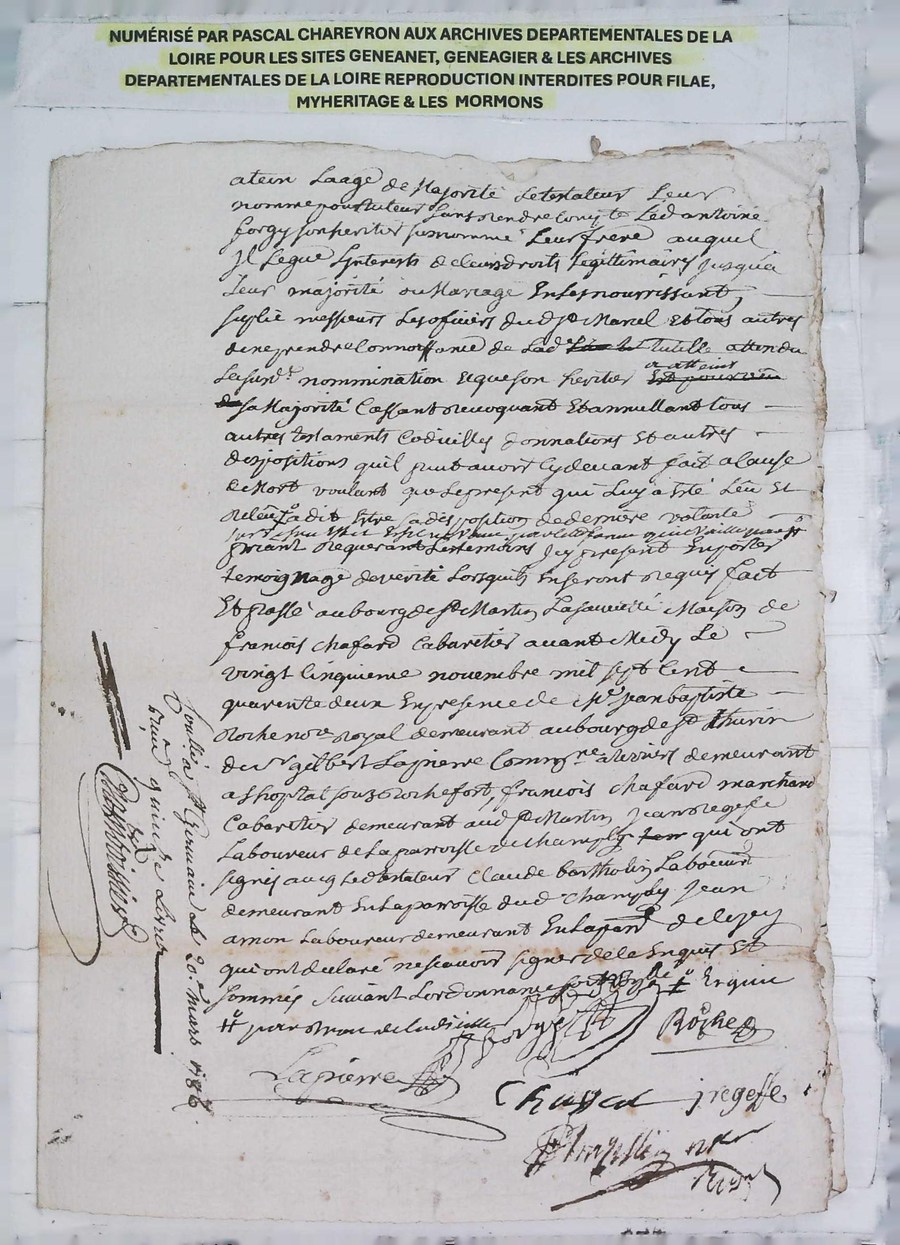 NUMÉRISÉ PAR PASCAL CHAREYRON AUX ARCHIVES DEPARTEMENTALES DE LA
LOIRE POUR LES SITES GENEANET, GENEAGIER & LES ARCHIVES
DEPARTEMENTALES DE LA LOIRE REPRODUCTION INTERDITES POUR FILAE,
MYHERITAGE & LES MORMONS
atein Laage de Majorité Letestateur Leur
nomme pour tuteur sans rendre Compte Led antoine
forgy son heritier susnommé Leur frere auquel
Jl Legue Lynterests de leurs droits Legittimaires jusqua
Leur majorité ou Mariage En les nourrissant,
suplie messieurs Les oficiers dud st Marcel Et tous autres
de ne prendre Connoissance de Lad tutelle attendu
La susd.e nommination Et que son heritier a atteint
sa Majorité Cassant revoquant Et annullant tous
autres testaments Codicilles donnations Et autres
dispositions quil peut avoir Cy devant fait a Cause
de Mort voulant que Le present qui Luy a Eté Leu Et
releu a dit Etre sa disposition de derniere volonté
priant requerant Les temoins Icy present En porter
temoignage de verité Lorsquils En seront requis fait
Et passé au bourg de st Martin La sauveté Maison de
francois Chafard Cabaretier avant Midy Le
vingt Cinquieme novembre mil sept Cent
quarente deux En presence de Me jean baptiste
Roche nore royal demeurant au bourg de st thurin
de sr gilbert Lapierre Commre demeurant
a Lhopital sous Rochefort, francois Chafard marchand
Cabaretier demeurant aud st Martin jean regefe
Laboureur de La paroisse de Champoly qui ont
signés avec Led testateur Claude bartholin Laboureur
demeurant En La paroisse dud Champoly jean
amon Laboureur demeurant En La par de
qui ont declaré ne scavoir signer de ce Enquis Et
sommés suivant Lordonnance
forge
Roche
Lapierre
jregefe
st Germain Le 20e mars
quinze Livres